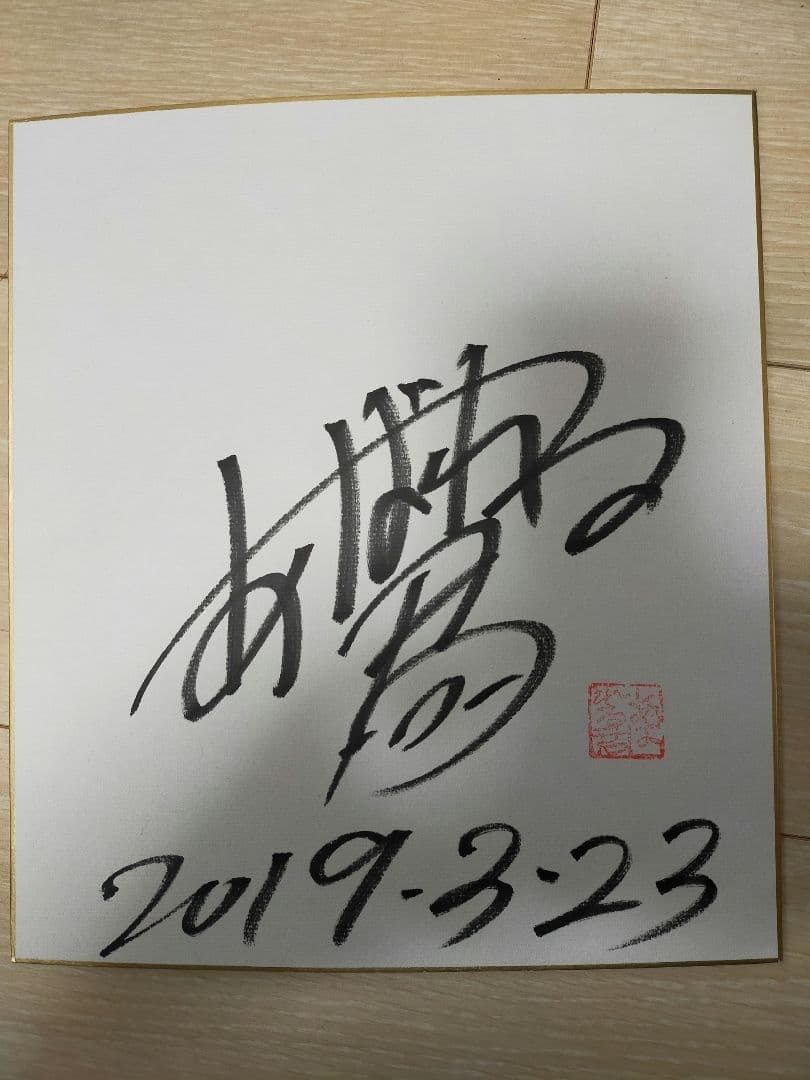 あばれる
君
2019.3.23